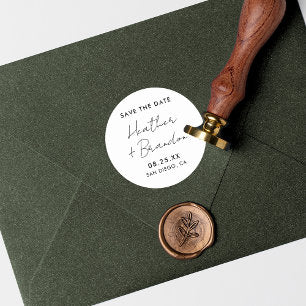 SAVE THE DATE
Heather
+ Brandon
08.25.XX
SAN DIEGO, CA